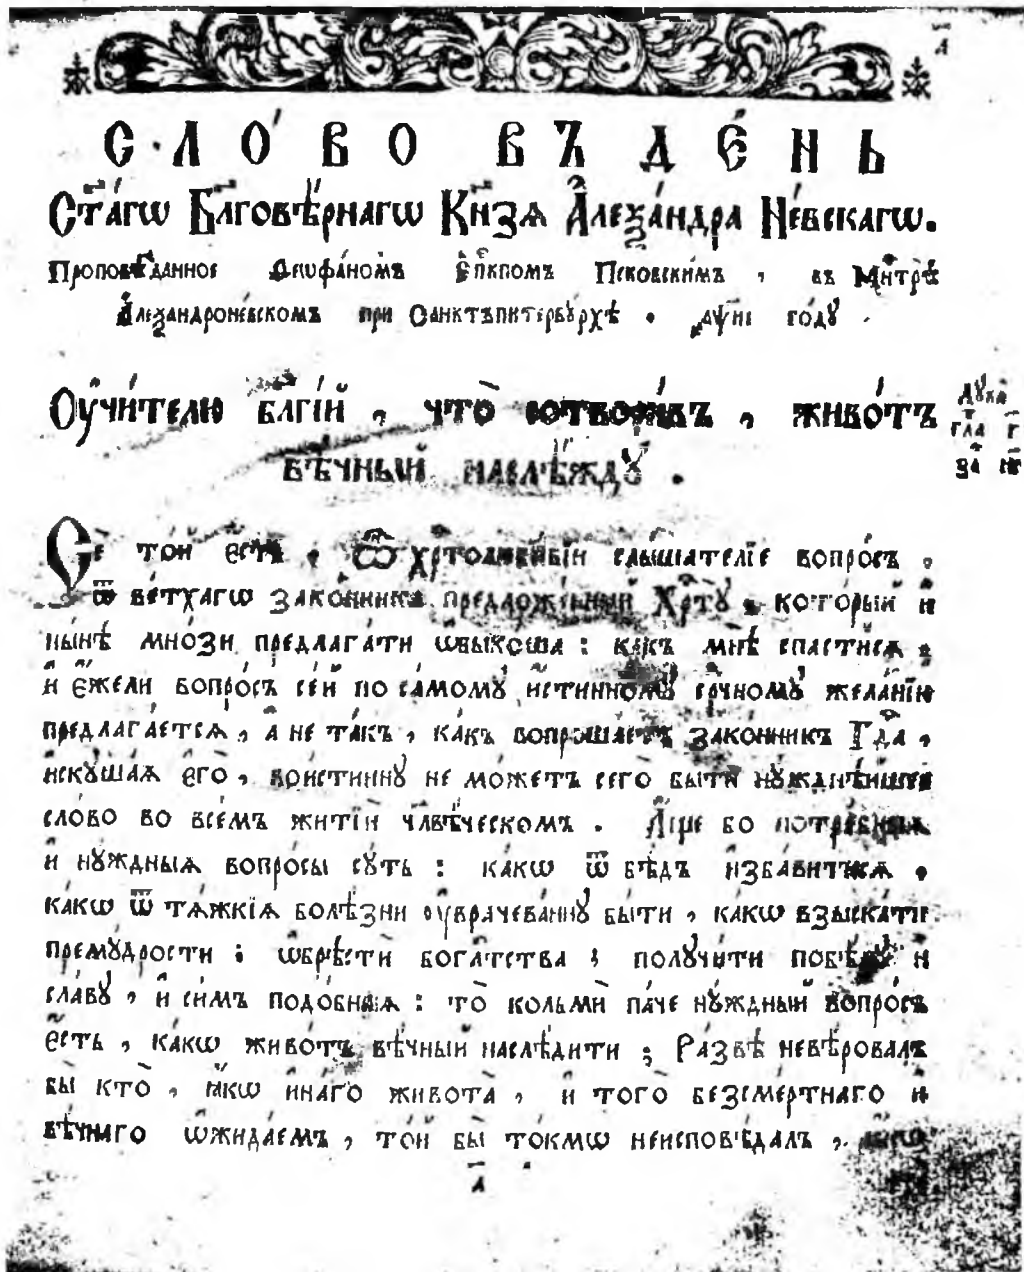 а҃
СЛО́ВО ВЪ ДЕ́НЬ
Ст҃а́гѡ Бл҃говѣ́рнагѡ Кн҃зѧ А҆леѯа́ндра Не́вскагѡ.
Проповѣ́данное Ѳеѡфа́номъ Е҆п҃кпомъ Пско́вскимъ, въ Мн҃трѣ̀
А҆леѯандроне́вскомъ при Санктъпитербꙋ́рхѣ. ҂аѱ҃иі го́дꙋ
Оу҆чи́телю бл҃гі́й, что̀ сотвори́въ, живо́тъ
вѣ́чный наслѣ́ждꙋ.
Лꙋка̀
гла г҃
за н҃г
Се́ то́й є҆сть, Ѽ хр҃толюби́вїи слы́шателїе вопро́съ,
ѿ ве́тхагѡ зако́нника предложе́нный Хр҃тꙋ̀, кото́рый и҆
ны́нѣ мно́зи предлага́ти ѡ҆быко́ша: ка́къ мнѣ̀ спасти́сѧ,
и҆ є҆́жели вопро́съ се́й по са́момꙋ и҆́стинномꙋ ср҃чномꙋ жела́нїю
предлага́етсѧ, а҆ не та́къ, ка́къ вопроша́етъ зако́нникъ Гд҃а,
и҆скꙋша́ѧ є҆го̀, вои́стиннꙋ не мо́жетъ сего̀ бы́ти нꙋжднѣ́йшее
сло́во во все́мъ житїѝ чл҃вѣ́ческомъ. А҆́ще бо потре́бныѧ
и҆ нꙋ́ждныѧ вопро́сы сꙋ́ть: ка́кѡ ѿ бѣ́дъ и҆зба́витисѧ,
ка́кѡ ѿ тѧ́жкїѧ болѣ́зни оу҆врачева́ннꙋ бы́ти, ка́кѡ взыска́ти
премꙋ́дрости: ѡ҆брѣ́сти бога́тства; полꙋчи́ти побѣ́дꙋ и҆
сла́вꙋ, и҆ си́мъ подо́бнаѧ: то̀ кольмѝ па́че нꙋ́ждный вопро́съ
є҆́сть, ка́кѡ живо́тъ вѣ́чный наслѣ́дити; Ра́звѣ невѣ́ровалъ
бы̀ кто̀, ꙗ҆́кѡ и҆на́го живота̀, и҆ того̀ безсме́ртнаго и҆
вѣ́чнаго ѡ҆жида́емъ, то́й бы̀ то́кмѡ неисповѣ́далъ, ꙗ҆́кѡ
а҃